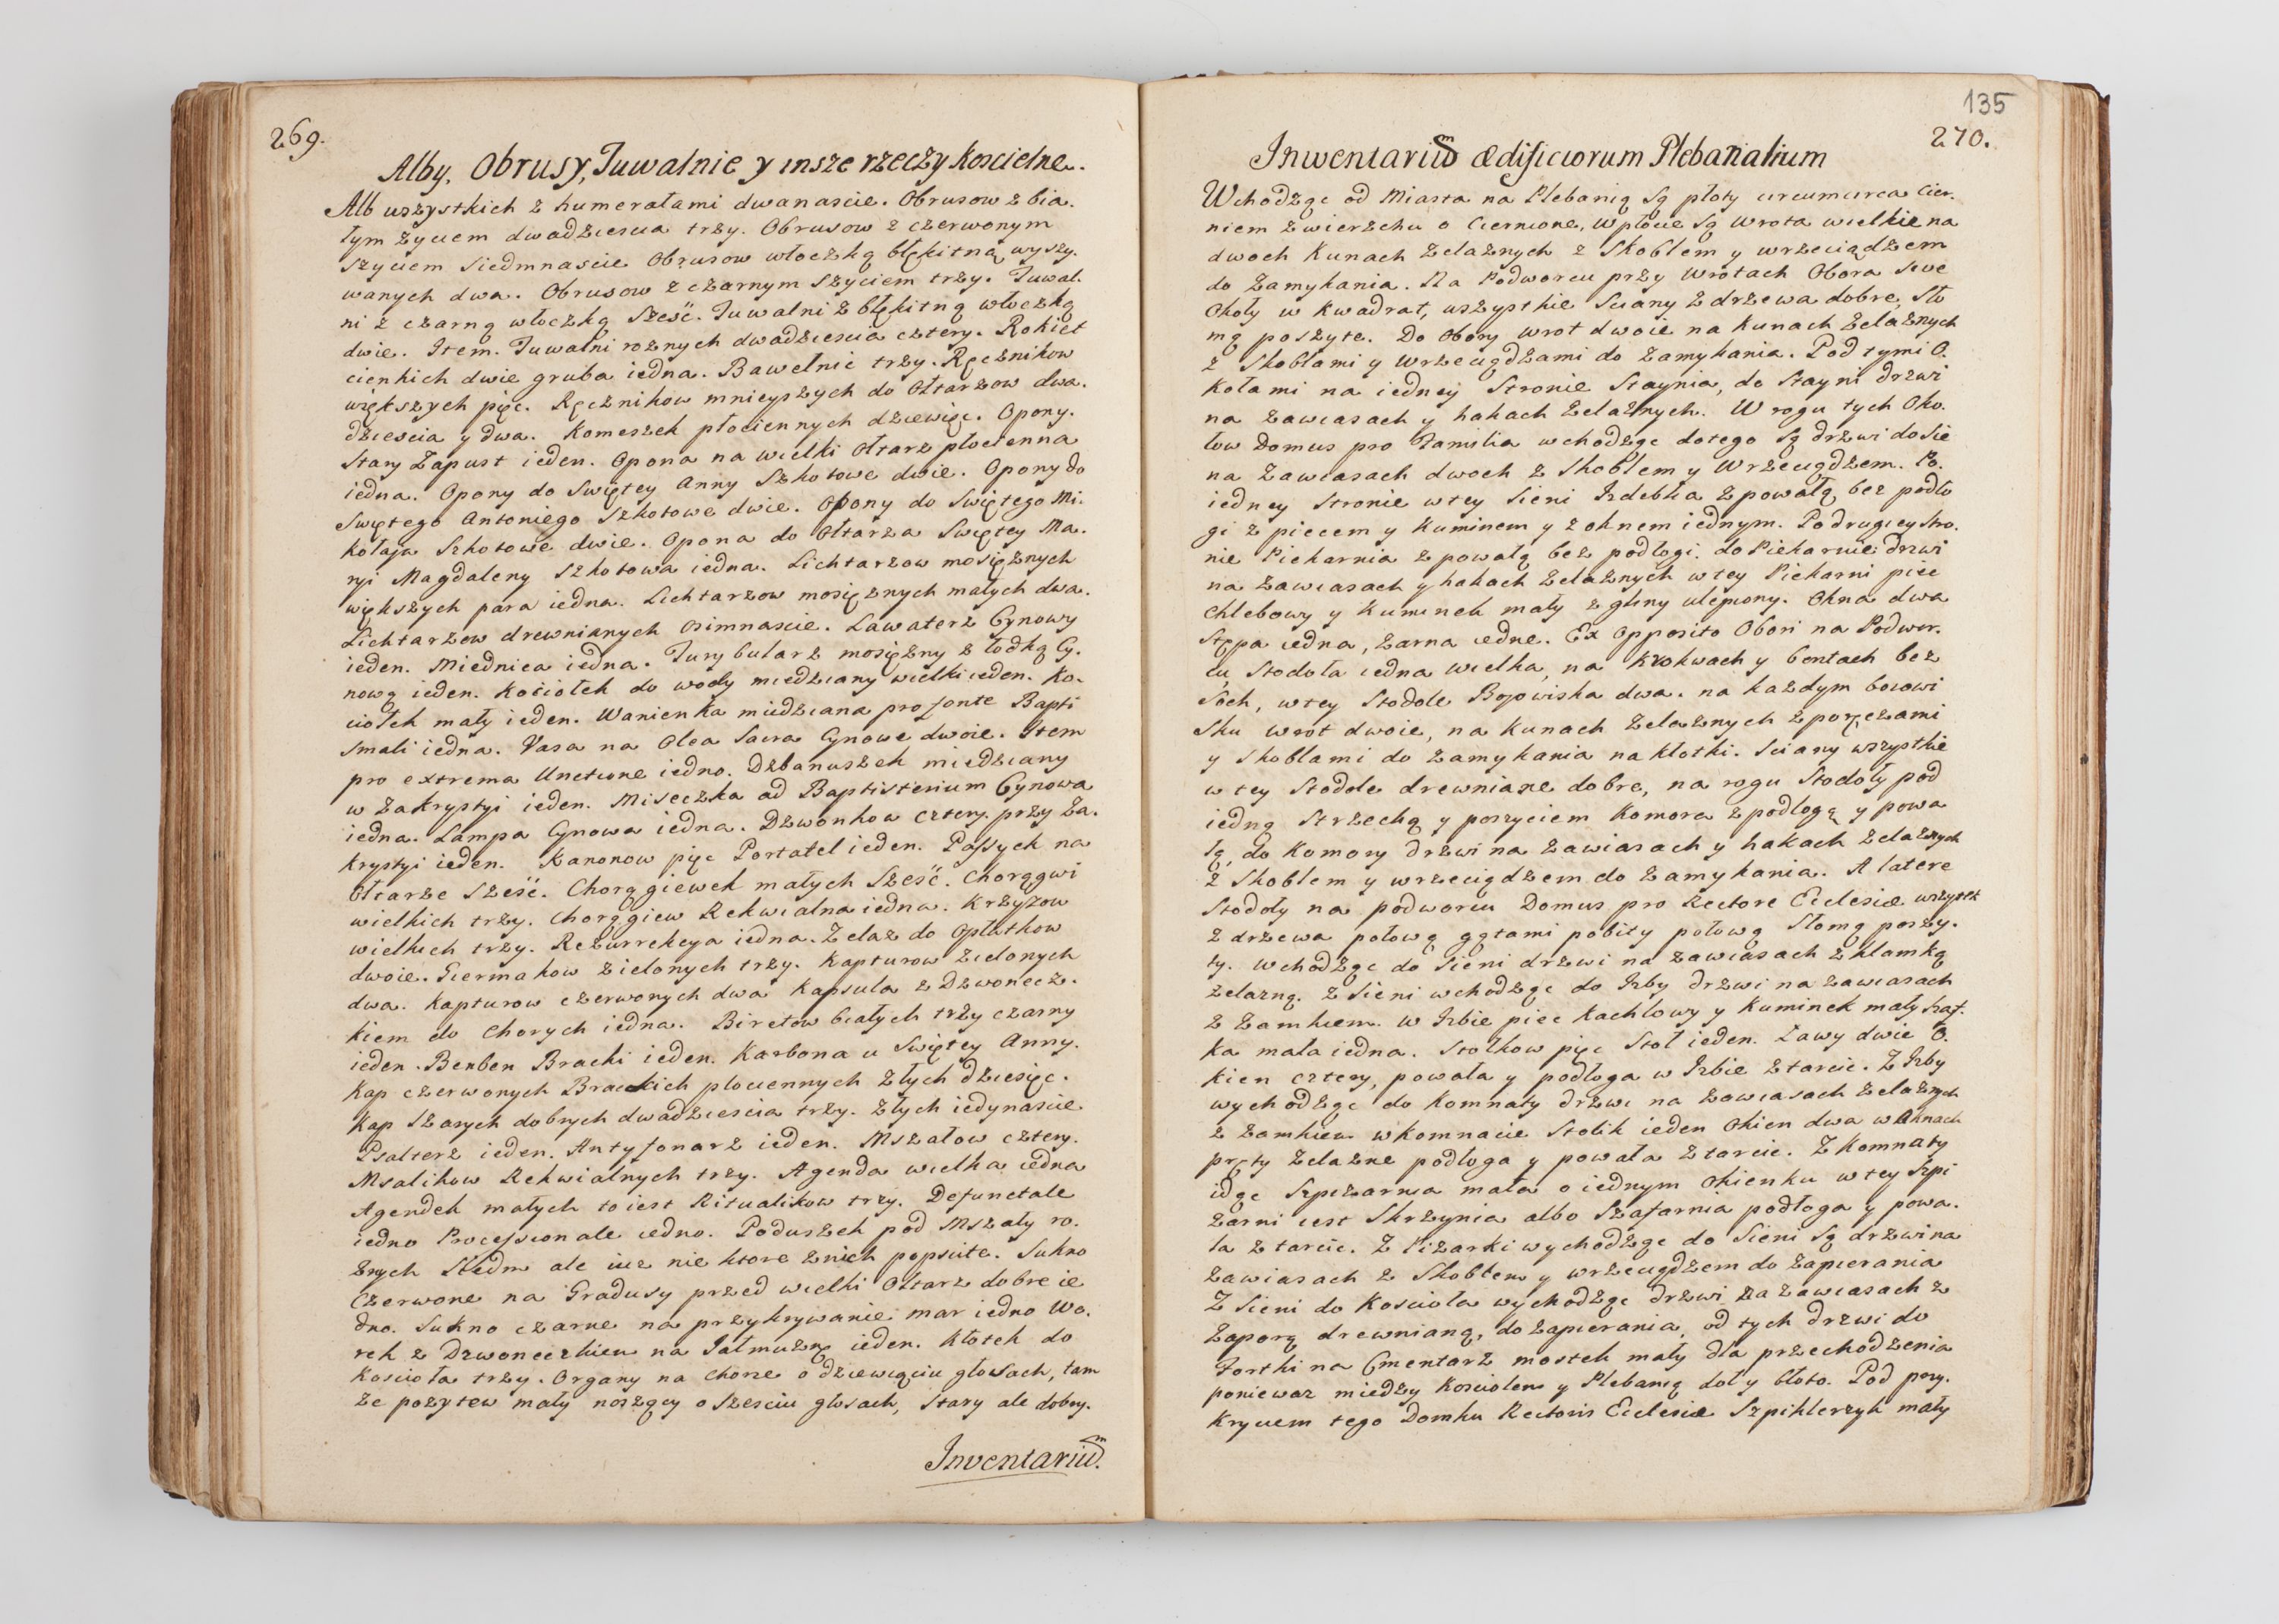 269.
Alby, Obrusy, Tuwalnie y insze rzeczy Koscielne.
Alb wszystkich z humerałami dwanascie. Obrusow z bia.
łym szyciem dwadziescia trzy. Obrusow z czerwonym
szyciem siedmnascie Obrusow włoczką błękitną wyszy.
wanych dwa. Obrusow z czarnym szyciem trzy. Tuwal.
ni z czarną włoczką sześć. Tuwalni z błękitną włoczką
dwie. Item. Tuwalni roznych dwadziescia cztery. Rokiet
cienkich dwie gruba iedna. Bawelnic trzy. Ręcznikow
większych pięc. Ręcznikow mnieyszych do Ołtarzow dwa.
dziescia y dwa. Komeszek płociennych dziewięc. Opony.
Stary Zapust ieden. Opona na wielki Ołtarz płocienna
iedna. Opony do Swiętey Anny Szkotowe dwie. Opony do
Swiętego Antoniego Szkotowe dwie. Opony do Swiętego Mi.
kołaja Szkotowe dwie. Opona do Ołtarza Swiętey Ma.
ryi Magdaleny Szkotowa iedna. Lichtarzow mosięznych
większych para iedna. Lichtarzow mosięznych małych dwa.
Lichtarzow drewnianych osimnascie. Lawaterz Cynowy
ieden. Miednica iedna. Turybularz mosięzny z łodką Cy.
nową ieden. Kociołek do wody miedziany wielki ieden. Ko.
ciołek mały ieden. Wanienka miedziana pro fonte Bapti
smali iedna. Vasa na Olea Sacra Cynowe dwoie. Item
pro extrema Unctione iedno. Dzbanuszek miedziany
w Zakrystyi ieden. Miseczka ad Baptisterium Cynowa
iedna. Lampa Cynowa iedna. Dzwonkow cztery. przy Za.
krystyi ieden. Kanonow pięc Portatel ieden. Passyek na
Ołtarze sześć. Chorągiewek małych sześć. Chorągwi
wielkich trzy. Chorągiew Rekwialna iedna. Krzyzow
wielkich trzy. Rezurrekcya iedna. Zelaz do Opłatkow
dwoie. Giermakow zielonych trzy. Kapturow zielonych
dwa. Kapturow czerwonych dwa Kapsula z Dzwonecz.
kiem do Chorych iedna. Biretow białych trzy czarny
ieden. Benben Bracki ieden. Karbona u Swiętey Anny.
Kap czerwonych Brackich płociennych złych dziesięc.
Kap szarych dobrych dwadziescia trzy. złych iedynascie
Psalterz ieden. Antyfonarz ieden. Mszałow cztery.
Msalikow Rekwialnych trzy. Agenda wielka iedna
Agendek małych to iest Ritualikow trzy. Defunctale
iedno Processionale iedno. Poduszek pod Mszały ro.
znych siedm ale iuz nie ktore znich popsute. Sukno
Czerwone na Gradusy przed wielki Ołtarz dobre ie
dno. Sukno czarne na przykrywanie mar iedno Wo.
rek z Dzwoneczkiem na Jałmuznę ieden. Kłotek do
Kosciola trzy. Organy na Chorze o dziewięciu głosach, tam
ze pozytew mały noszący o szesciu głosach, stary ale dobry.
Inventariu͠m.
135
270.
Inwentariu͠m ædificiorum Plebanalium
Wchodząc od Miasta na Plebanią są płoty circumcirca cier.
niem zwierzchu o Ciernione, Wpłocie są wrota wielkie na
dwoch Kunach zelaznych z Skoblem y wrzeciądzem
do zamykania. Na Podworcu przy wrotach Obora seve
Okoły w kwadrat, wszystkie sciany z drzewa dobre, sło
mą poszyte. Do Obory wrot dwoie na Kunach zelaznych
z Skoblami y wrzeciądzami do zamykania. Pod tymi O.
kołami na iedney stronie Staynia, do Stayni drzwi
na zawiasach y hakach zelaznych. W rogu tych Oko.
łow Domus pro Familia wchodząc dotego są drzwi do sie
na zawiasach dwoch z Skoblem y Wrzeciądzem. Po.
iedney stronie wtey Sieni Izdebka z powałą bez podło
gi z piecem y kuminem y z oknem iednym. Po drugiey stro.
nie Piekarnia z powałą bez podłogi. do Piekarnie drzwi
na zawiasach y hakach zelaznych w tey Piekarni piec
chlebowy y kuminek mały z gliny ulepiony. Okna dwa
Stępa iedna, zarna iedne. Ex Opposito Obori na Podwor.
cu Stodoła iedna wielka, na Krokwach y bentach bez
soch, w tey Stodole Bojowiska dwa. na kazdym boiowi
sku wrot dwoie, na Kunach zelaznych z poręczami
y Skoblami do zamykania na kłotki. Sciany wszystkie
w tey Stodole drewniane dobre, na rogu Stodoły pod
iedną Strzechą y poszyciem Komora z podłogą y powa
łą, do Komory drzwi na zawiasach y hakach zelaznych
z Skoblem y wrzeciądzem do zamykania. A latere
Stodoły na podworcu Domus pro Rectore Ecclesiæ wszystek
z drzewa połową gątami pobity połową Słomą poszy.
ty. Wchodząc do Sieni drzwi na zawiasach z klamką
zelazną. z Sieni wchodząc do Izby drzwi na zawiasach
z zamkiem. w Izbie piec kachlowy y Kuminek mały szaf.
ka mała iedna. Stołkow pięc Stoł ieden. Ławy dwie O.
kien cztery, powała y podłoga w Izbie z tarcic. Z Izby
wychodząc do Komnaty drzwi na zawiasach zelaznych
z zamkiem wkomnacie Stolik ieden Okien dwa w Oknach
pręty zelazne podłoga y powała z tarcic. Z Komnaty
idąc Szpizarnia mała o iednym Okienku w tey szpi
zarni iest Skrzynia albo Szafarnia podłoga y powa.
ła z tarcic. Z Pizarki wychodząc do Sieni są drzwi na
zawiasach z Skoblem y wrzeciądzem do zapierania
Z Sieni do Kosciola wychodząc drzwi na zawiasach z
zaporą drewnianą, do zapierania, od tych drzwi do
Fortki na Cmentarz mostek mały dla przechodzenia
poniewaz miedzy Kosciolem y Plebanią doł y błoto. Pod pory.
kryciem tego Domku Rectoris Ecclesiæ Szpiklerzyk mały